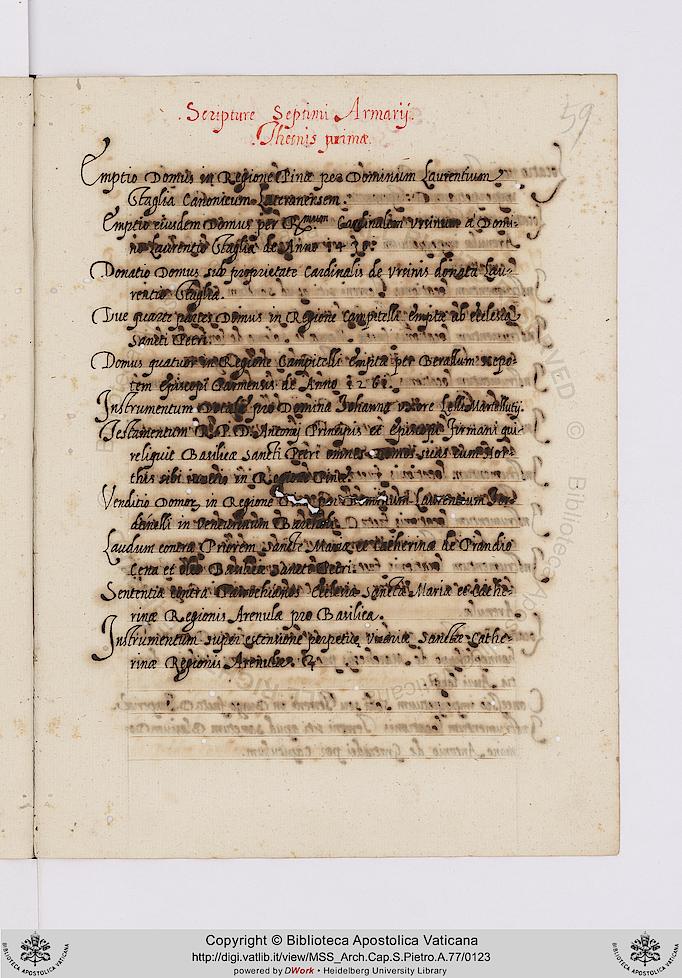 .Scripture Septimi Armarij.
.Thecis primæ.
59
Emptio Domus in Regione Pineæ per Dominum Laurentium
Staglia Canonicum Lateranensem.
Emptio eiusdem Domus per R.mum Cardinalem Vrsinum a Domi-
no Laurentio Staglia de Anno 14
Donatio Domus sub proprietate Cardinalis de Vrsinis donata Lau-
rentio Staglia.
Due quarte partes Domus in Regione Campitelli Emptæ ab ecclesia
Sancti Petri.
Domus quatuor in Regione Campitelli Emptæ per Berallum Nepo-
tem Episcopi Parmensis de Anno 1261.
Instrumentum Dotale pro Domina Iohanna vxore Lelli Martellutij
Testamentum R. P. D. Antonij Principis et Episcopi Firmani qui
reliquit Basilicæ Sancti Petri omnes Domos suas cum Hor-
this sibi in Regione
Venditio Domor in Regione per Laurentium
in
Laudum contra Priorem Sanctæ Mariæ et Catherinæ de Prandio
Cena et Basilicæ Sancti Petri.
Sententia contra Parrochianos Ecclesiæ Sanctæ Mariæ et Cathe-
rinæ Regionis Arenulæ pro Basilica.
Instrumentum super extensione perpetuæ vicariæ Sanctæ Cathe-
rinæ Regionis Arenulæ.
Copyright © Biblioteca Apostolica Vaticana
http://digi.vatlib.it/view/MSS_Arch.Cap.S.Pietro.A.77/0123
powered by DWork • Heidelberg University Library
BIBLIOTECA APOSTOLICA VATICANA
BIBLIOTECA APOSTOLICA VATICANA